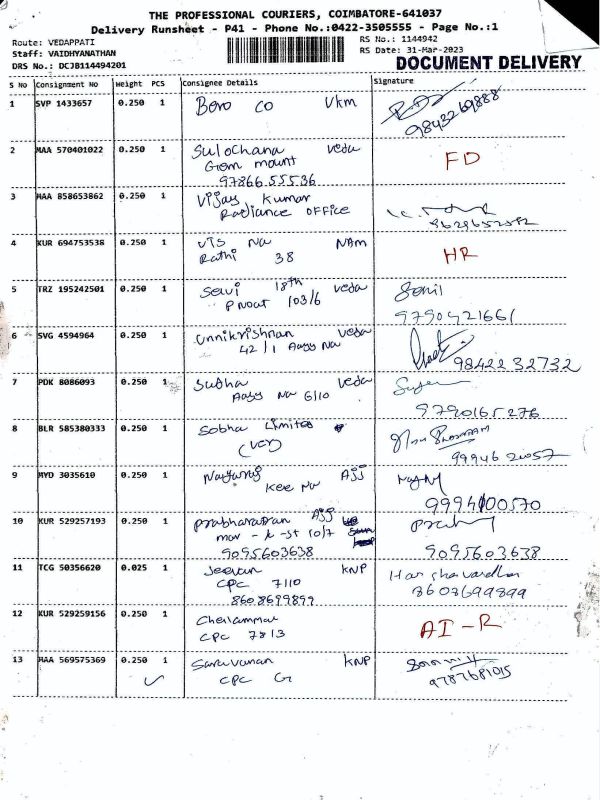 THE PROFESSIONAL COURIERS, COIMBATORE-641037
Delivery Runsheet - P41 - Phone No.:0422-3505555 - Page No.:1
Route: VEDAPPATI
RS No.: 1144942
Staff: VAIDHYANATHAN
RS Date: 31-Mar-2023
DRS No.: DCJB114494201
DOCUMENT DELIVERY
S No Consignment No Weight PCS Consignee Details Signature
1 SVP 1433657 0.250 1 Boro co Vkm
9843269888
2 MAA 570401022 0.250 1 Sulochana Veda
Gem mount FD
97866 55536
3 MAA 858653862 0.250 1 Vijay Kumar
Radiance OFFice
4 KUR 694753538 0.250 1 UTS Na NAm
Rathi 38 HR
5 TRZ 195242501 0.250 1 Selvi 18th Veda
103/6 9790421661
6 SVG 4594964 0.250 1 Unnikrishnan Veda
42/1 Na 98422 32732
7 PDK 8086093 0.250 1 Sudha Veda
Na 6/10 9790165276
8 BLR 585380333 0.250 1 Sobha Limited
9 MYD 3035610 0.250 1 Nagaraj Ajj
Kee Na 9994100570
10 KUR 529257193 0.250 1 Prabhakaran Ajj
10/7
9095603638 9095603638
11 TCG 50356620 0.025 1 Jeevan KNP
CPC 7110
8608699899 8608699899
12 KUR 529259156 0.250 1
CPC 7813 AI-R
13 MAA 569575369 0.250 1 Saravanan KNP
CPC G 9787681015